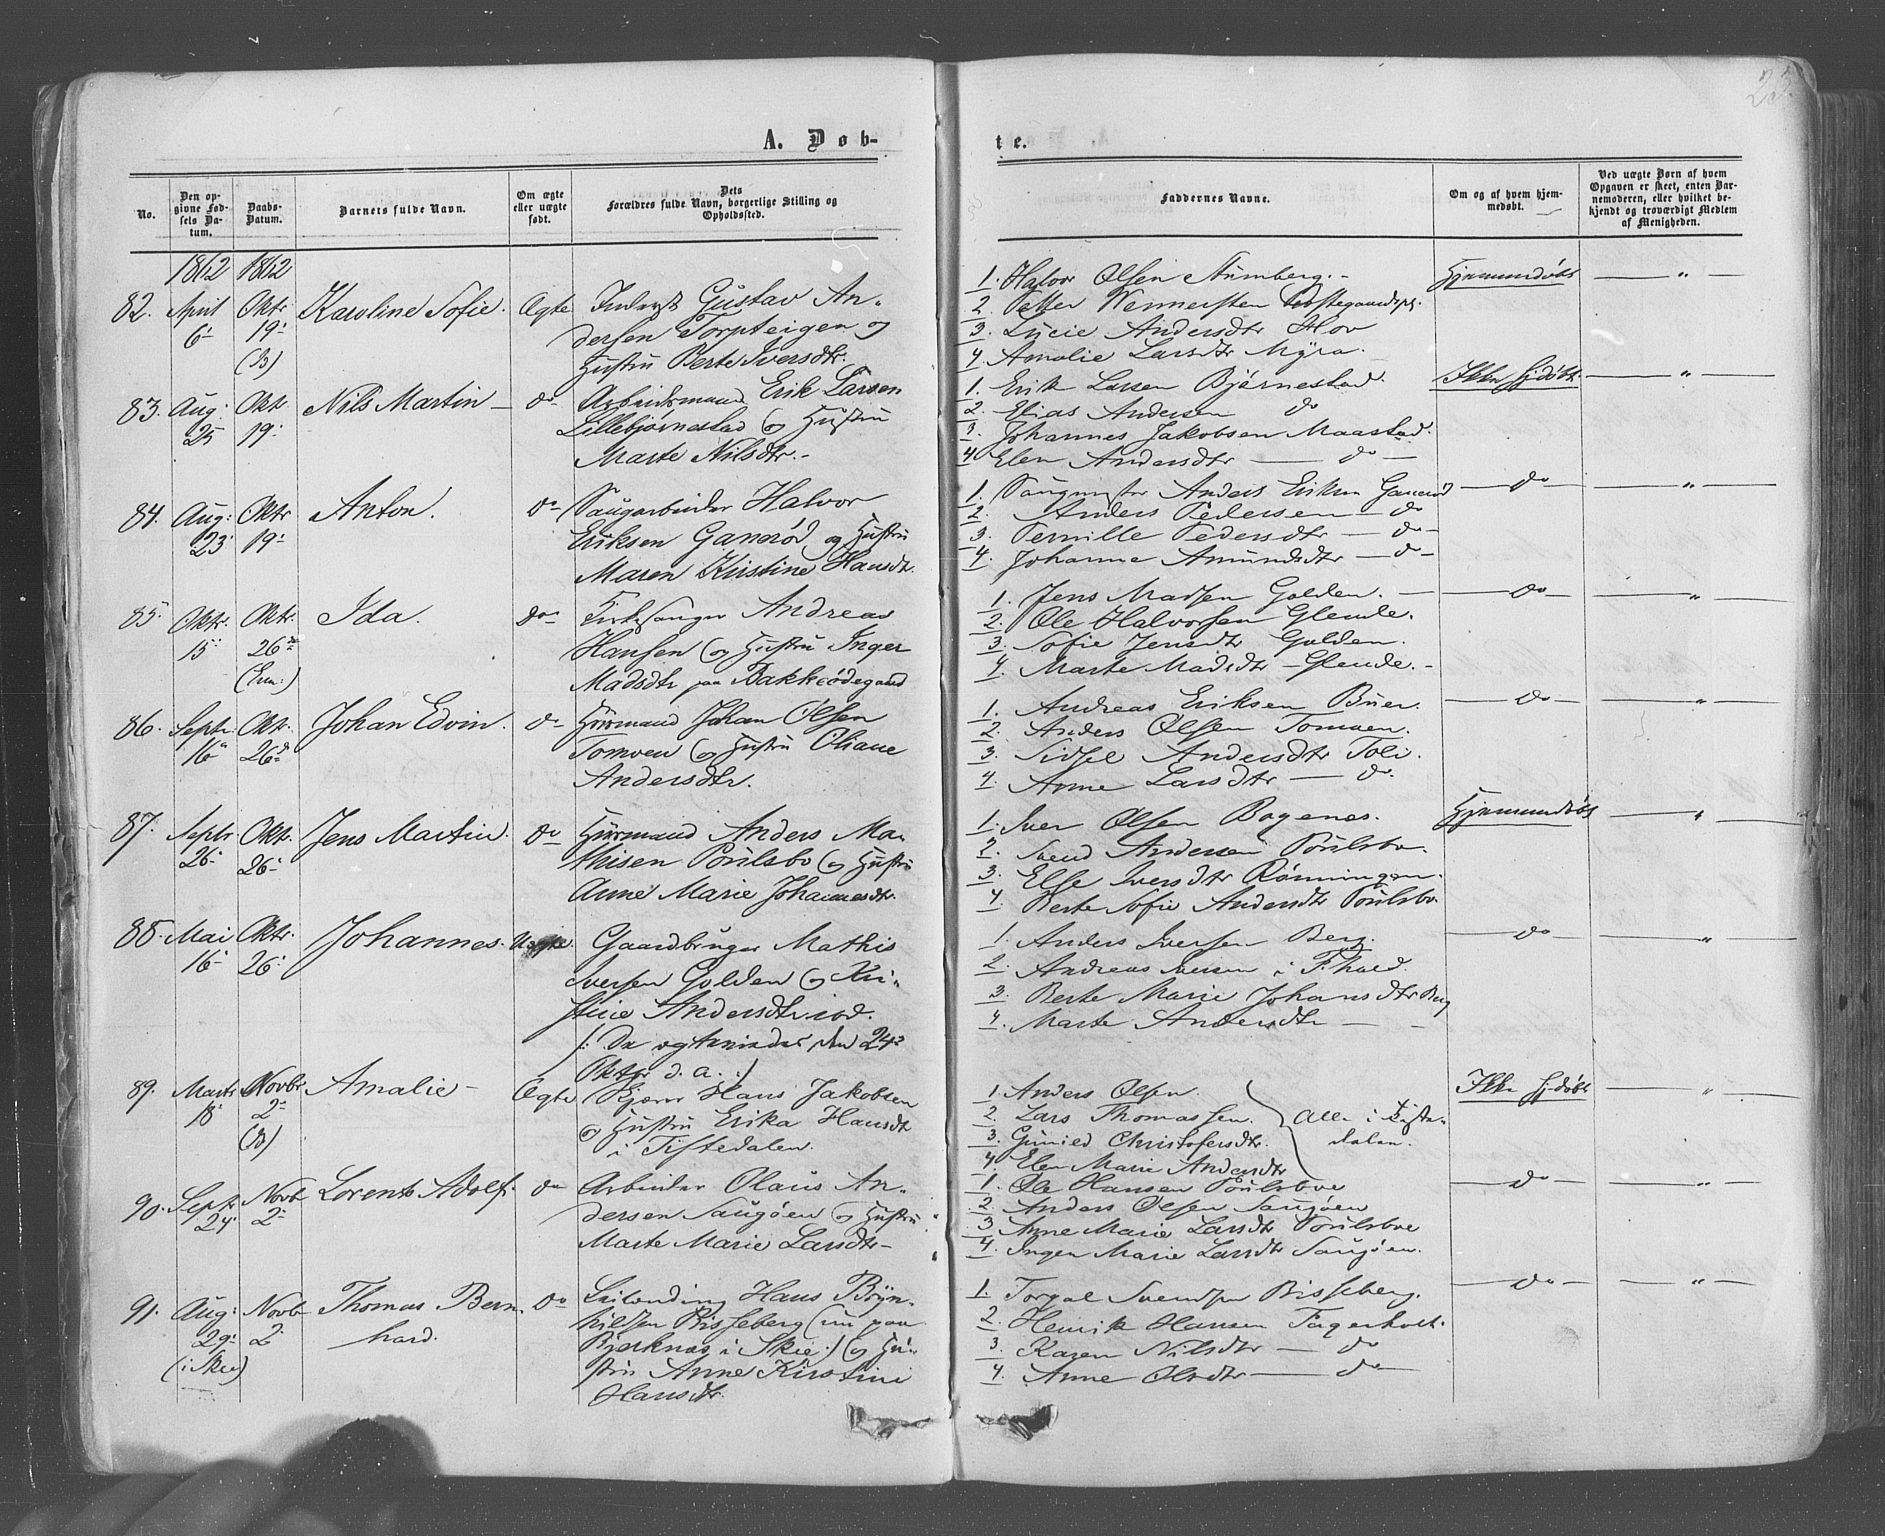 23.
A. Døb-
te.
No.
Den op-
givne Fød-
sels Da-
tum.
Daabs-
Datum.
Barnets fulde Navn.
Om ægte
eller uægte
født.
Dets
Forældres fulde Navn, borgerlige Stilling og
Opholdssted.
Faddernes Navne.
Om og af hvem hjem-
medøbt.
Ved uægte Børn af hvem
Opgaven er skeet, enten Bar-
nemoderen, eller hvilket be-
kjendt og troværdigt Medlem
af Menigheden.
1862 1862
82. April 6 Oktr 19 (B) Karoline Sofie. Ægte Inderst Gustav An-
dersen Torpteigen og
Hustru Berte Iversdtr.
1. Halvor Olsen Stumberg.
2. Petter Wennersten
3. Lucie Andersdtr Hov
4. Amalie Larsdtr Myra.
Hjemmedøbt
83. Aug: 25 Okt 19 Nils Martin do Arbeidsmand Erik Larsen
Lillebjørnestad og Hustru
Marte Nilsdtr.
1. Erik Larsen Bjørnestad.
2. Elias Andersen do
3. Johannes Jakobsen Maastad.
4. Elen Andersdtr do
Ikke hjdøbt
84. Aug: 23 Oktr 19 Anton. do Saugarbeider Halvor
Eriksen Ganerød og Hustru
Maren Kristine Hansdtr.
1. Saugmester Anders Eriksen Ganerød
2. Anders Pedersen do
3. Pernille Pedersdtr do
4. Johanne Amundsdtr do
do
85. Oktr. 15 Oktr. 26 Ida. do Kirkesanger Andreas
Hansen og Hustru Inger
Madsdtr paa Bakkeødegaard
1. Jens Madsen Golden.
2. Ole Halvorsen Glende.
3. Sofie Jensdtr Golden.
4. Marte Madsdtr Glende.
do
86. Septr. 16 Oktr. 26 Johan Edvin. do Huusmand Johan Olsen
Tomven og Hustru Oliane
Andersdtr.
1. Andreas Eriksen Buer.
2. Anders Olsen Tomven.
3. Sidsel Andersdtr
4. Anne Larsdtr do
do
87. Septr 26 Okt. 26 Jens Martin. do Huusmand Anders Ma-
thisen Poulsbo og Hustru
Anne Marie Johannesdtr.
1. Iver Olsen Bogenes.
2. Svend Andersen Poulsbo.
3. Else Iversdtr Rønningen.
4. Berte Sofie Andersdtr Poulsbo
Hjemmedøbt
88. Mai 16 Oktr. 26 Johannes. Uægte. Gaardbruger Mathis
Iversen Golden og Kri-
stine Andersdtr ibd.
/: De egteviedes den 24
Oktbr d. a. :/
1. Anders Iversen Berg.
2. Andreas Iversen i Fr.hald.
3. Berte Marie Johansdtr Berg
4. Marte Andersdtr
do
89. Marts 18 Novbr 2 (B) Amalie Ægte Kjører Hans Jakobsen
og Hustru Erika Hansdtr
i Tistedalen.
1. Anders Olsen.
2. Lars Thomassen.
3. Gunild Christofersdtr.
4. Elen Marie Andersdtr
Alle i Tiste-
dalen.
Ikke hjdøbt
90. Septr 24 Novb 2 Lorents Adolf. do Arbeider Olaus An-
dersen Saugøen og Hustru
Marte Marie Larsdtr
1. Ole Hansen Poulsboe
2. Anders Olsen Saugøen
3. Anne Marie Larsdtr Poulsboe
4. Inger Marie Larsdtr Saugøen.
do
91. Aug: 29 (i Skee) Novb 2 Thomas Bern-
hard. do Leilending Hans Bryn-
hilsen Risseberg (nu paa
Bjerknæs i Skee:) og Hu-
stru Anne Kirstine
Hansdtr.
1. Torgal Svendsen Risseberg.
2. Henrik Hansen Fagerholt.
3. Karen Nilsdtr do
4. Anne Olsdtr do
do